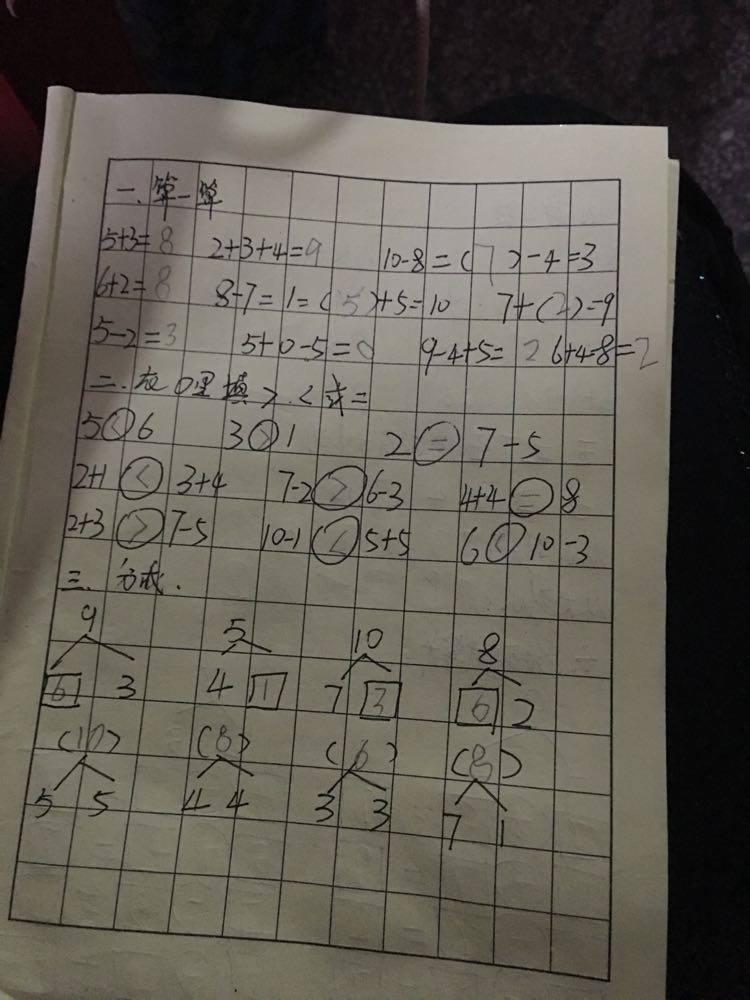 一. 算一算
5+3=8 2+3+4=9 10-8=(7)-4=3
6+2=8 8-7=1=(5)+5=10 7+(2)=9
5-2=3 5+0-5=0 9-4+5=2 6+4-8=2
二.在○里填>.<或=
5<6 3>1 2=7-5
2+1<3+4 7-2>6-3 4+4=8
2+3>7-5 10-1<5+5 6<10-3
三. 分成.
9 5 10 8
6 3 4 1 7 3 6 2
(10) (8) (6) (8)
5 5 4 4 3 3 7 1